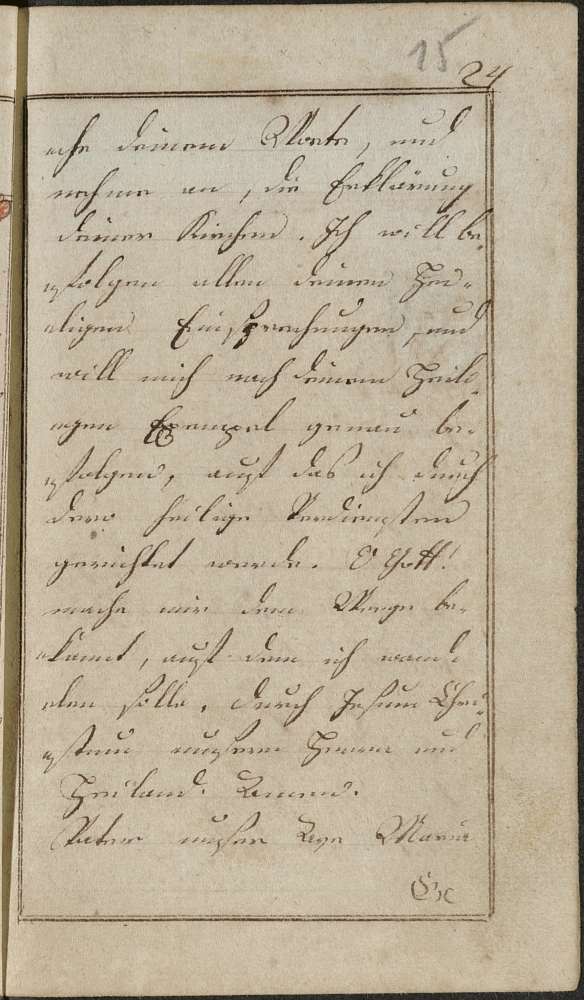 15
24
che deinem Worte, und
nehme an, die Erklärung
deiner Kirchen. Ich will be¬
folgen allen deinen Hei¬
ligen Einsprechungen, und
will mich nach deinem Heili¬
gen Exempel genau be¬
folgen, auf das ich durch
dero heilige Verdiensten
gerichtet werde. O Gott!
mache mir dem Weege be¬
kannt, auf dem ich wand¬
len solle. durch Jesum Chri¬
stum unsern Herrn und
Heiland. Amen.
Vater unser Ave Maria